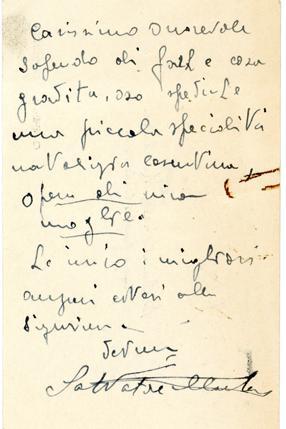 Carissimo Onorevole
sapendo di farLe cosa
gradita, oso spedirLe
una piccola specialità
natalizia cosentina
opera di mia
moglie.
Le invio i migliori
auguri estesi alla
Signora
Salvatore